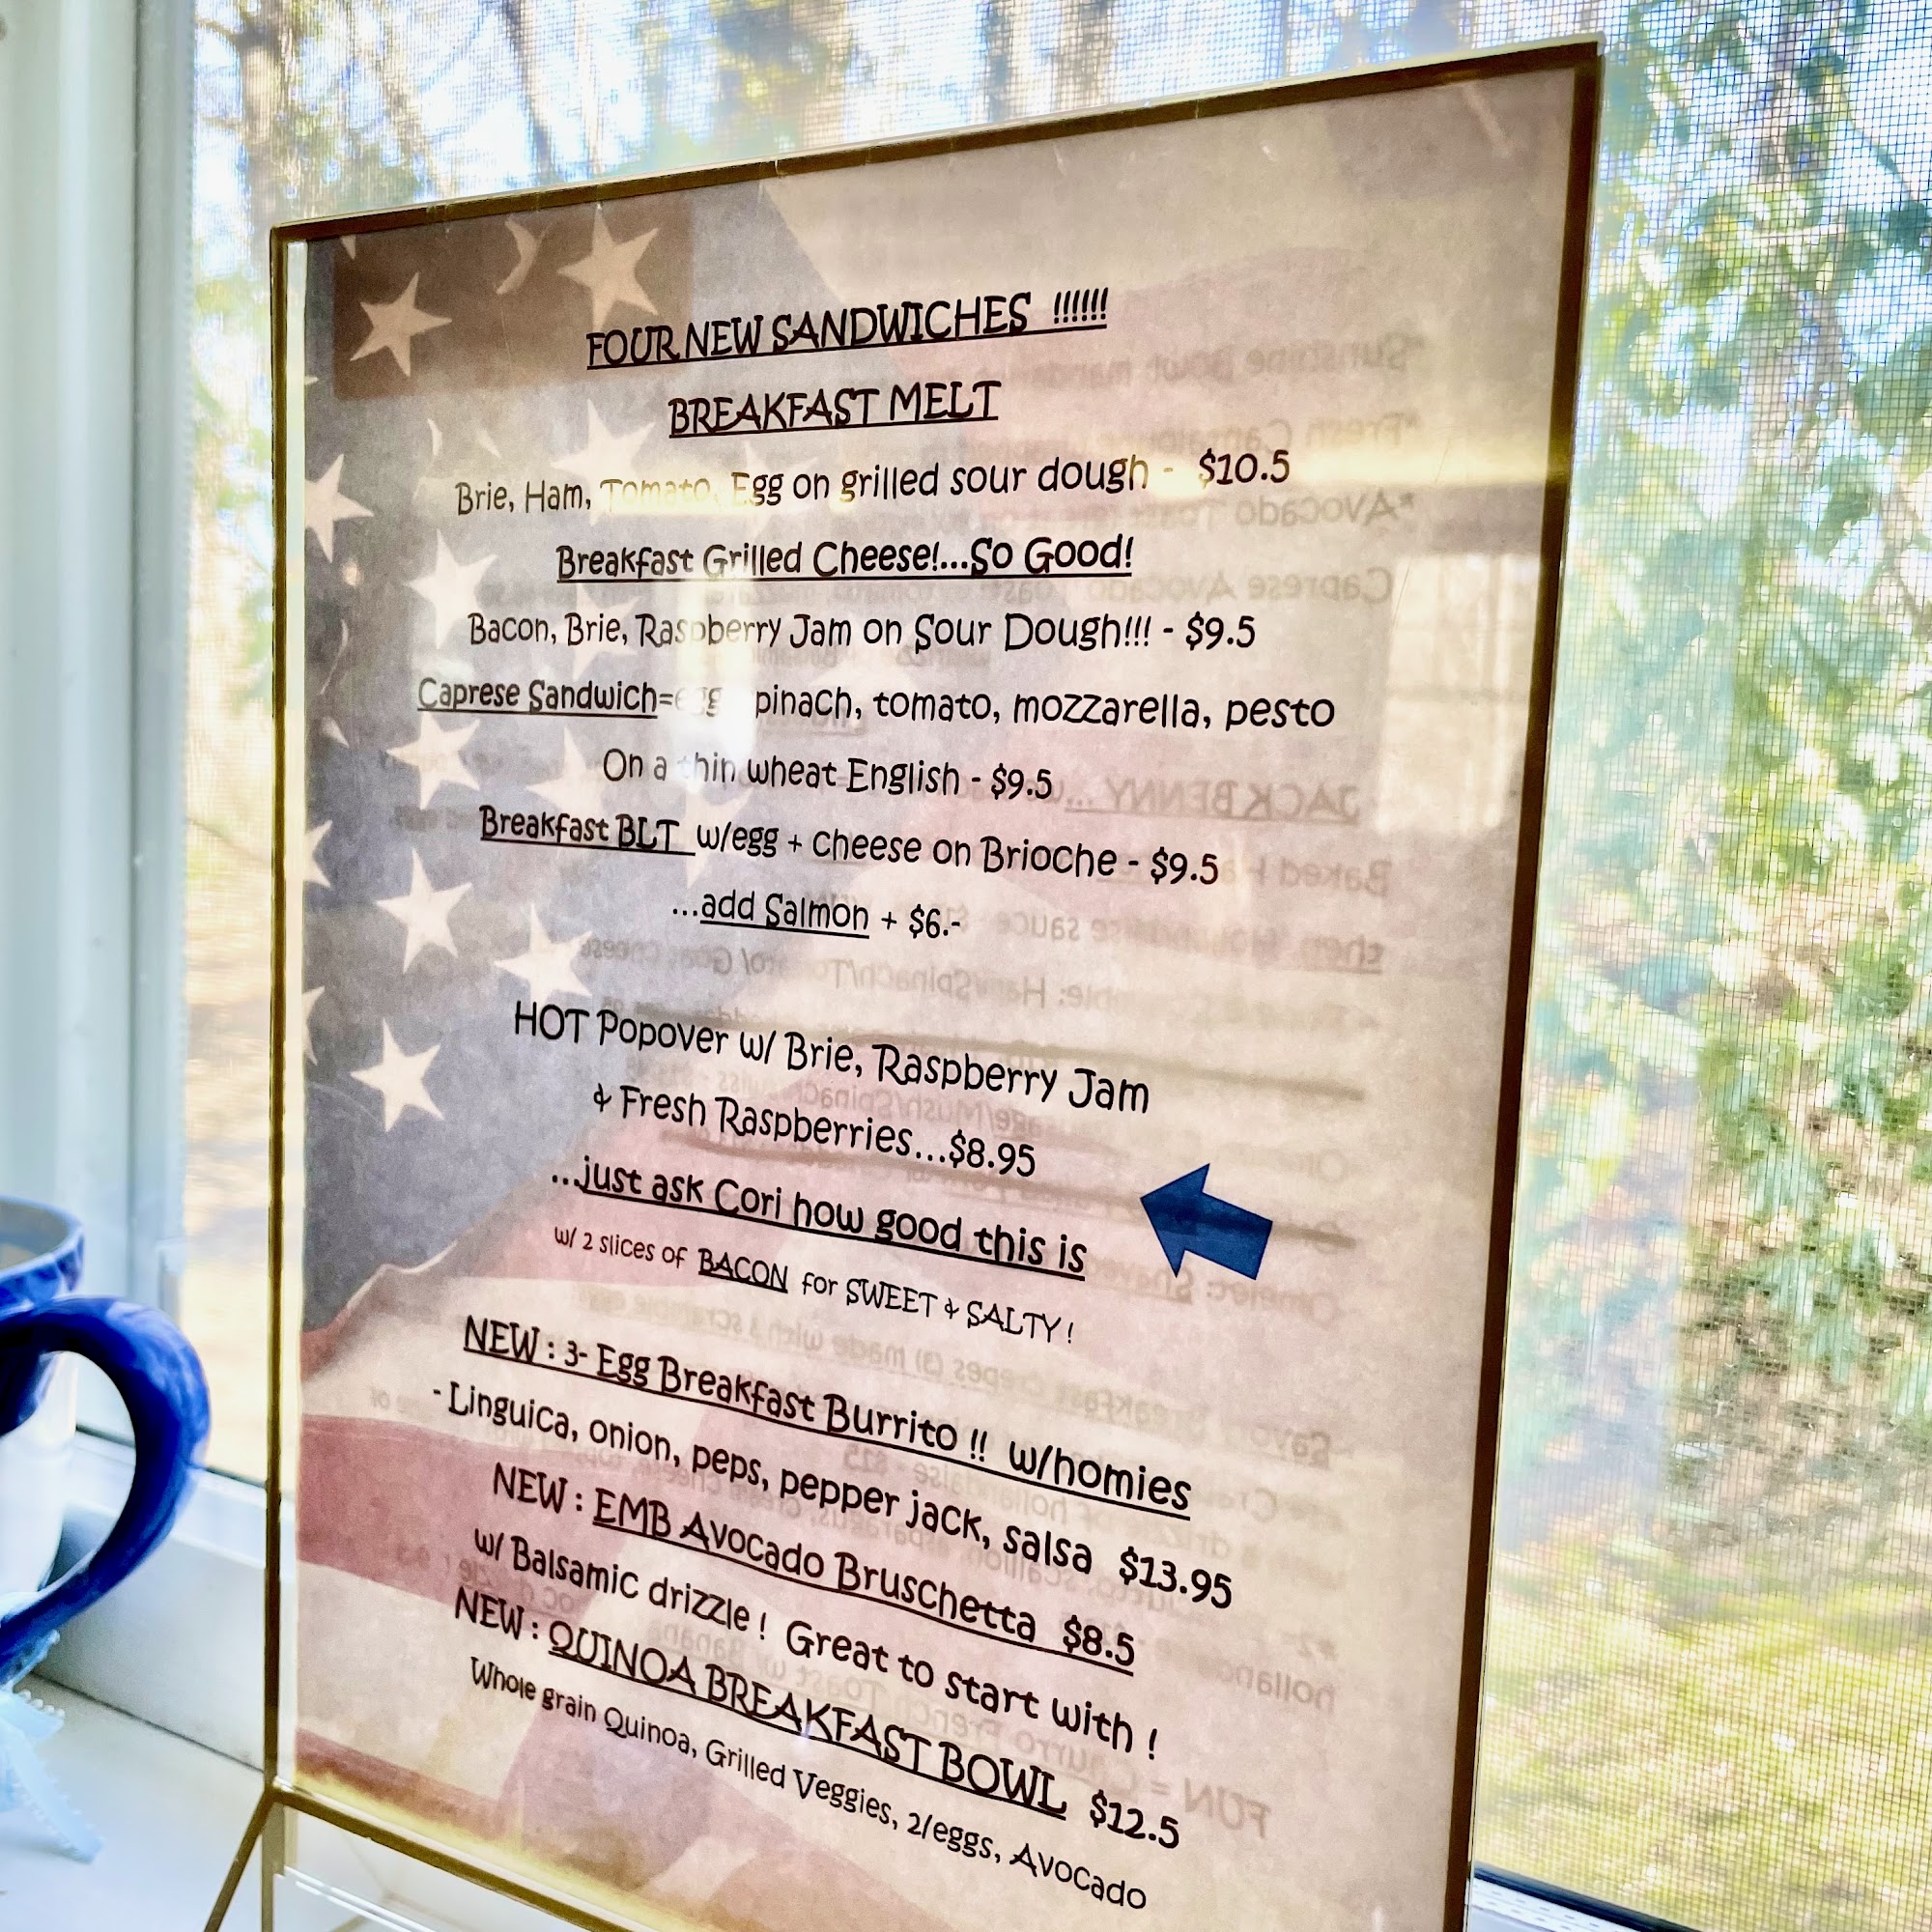 FOUR NEW SANDWICHES !!!!!!
BREAKFAST MELT
Brie, Ham, Tomato, Egg on grilled sour dough - $10.5
Breakfast Grilled Cheese!...So Good!
Bacon, Brie, Raspberry Jam on Sour Dough!!! - $9.5
Caprese Sandwich= pinach, tomato, mozzarella, pesto
On a thin wheat English - $9.5
Breakfast BLT w/egg + cheese on Brioche - $9.5
...add Salmon + $6.-
HOT Popover w/ Brie, Raspberry Jam
& Fresh Raspberries...$8.95
...just ask Cori how good this is
w/ 2 slices of BACON for SWEET & SALTY !
NEW : 3- Egg Breakfast Burrito !! w/homies
- Linguica, onion, peps, pepper jack, salsa $13.95
NEW : EMB Avocado Bruschetta $8.5
w/ Balsamic drizzle ! Great to start with !
NEW : QUINOA BREAKFAST BOWL $12.5
Whole grain Quinoa, Grilled Veggies, 2/eggs, Avocado